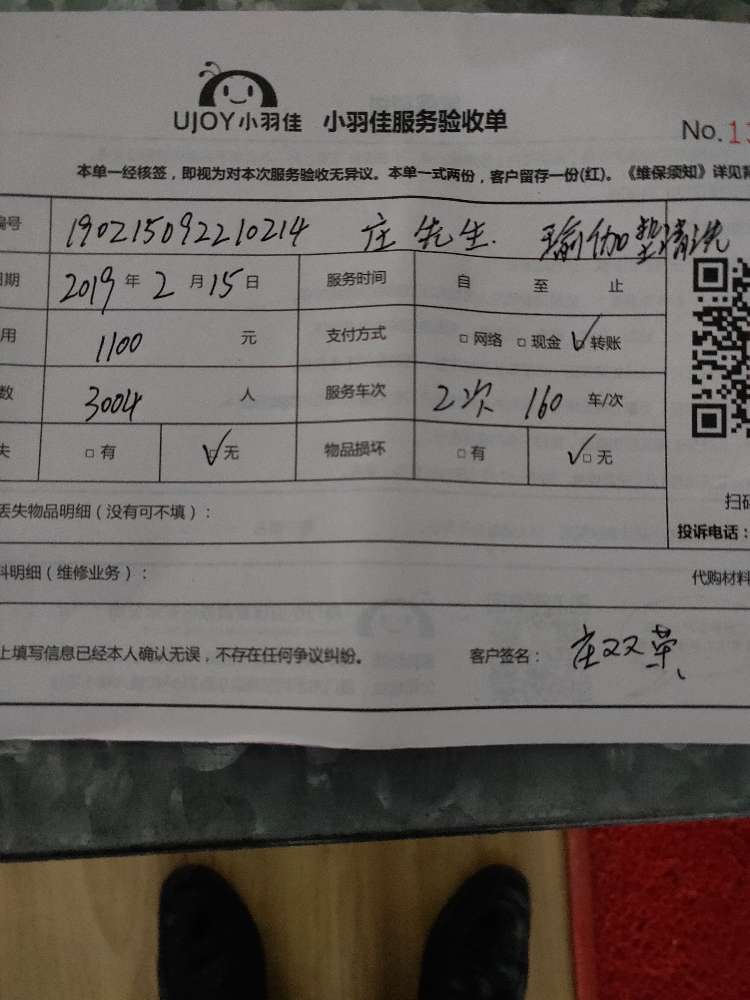 UJOY小羽佳 小羽佳服务验收单
No.1
本单一经核签，即视为对本次服务验收无异议。本单一式两份，客户留存一份(红)。《维保须知》详见背
编号 190215092210214 庄先生. 瑜伽垫清洗
日期 2019 年 2 月 15 日 服务时间 自 至 止
用 1100 元 支付方式 □ 网络 □ 现金 □ 转账
数 3004 人 服务车次 2次 160 车/次
失 □ 有 □ 无 物品损坏 □ 有 □ 无
扫码
丢失物品明细（没有可不填）：
投诉电话：
料明细（维修业务）：
代购材料
上填写信息已经本人确认无误，不存在任何争议纠纷。 客户签名： 庄双荣